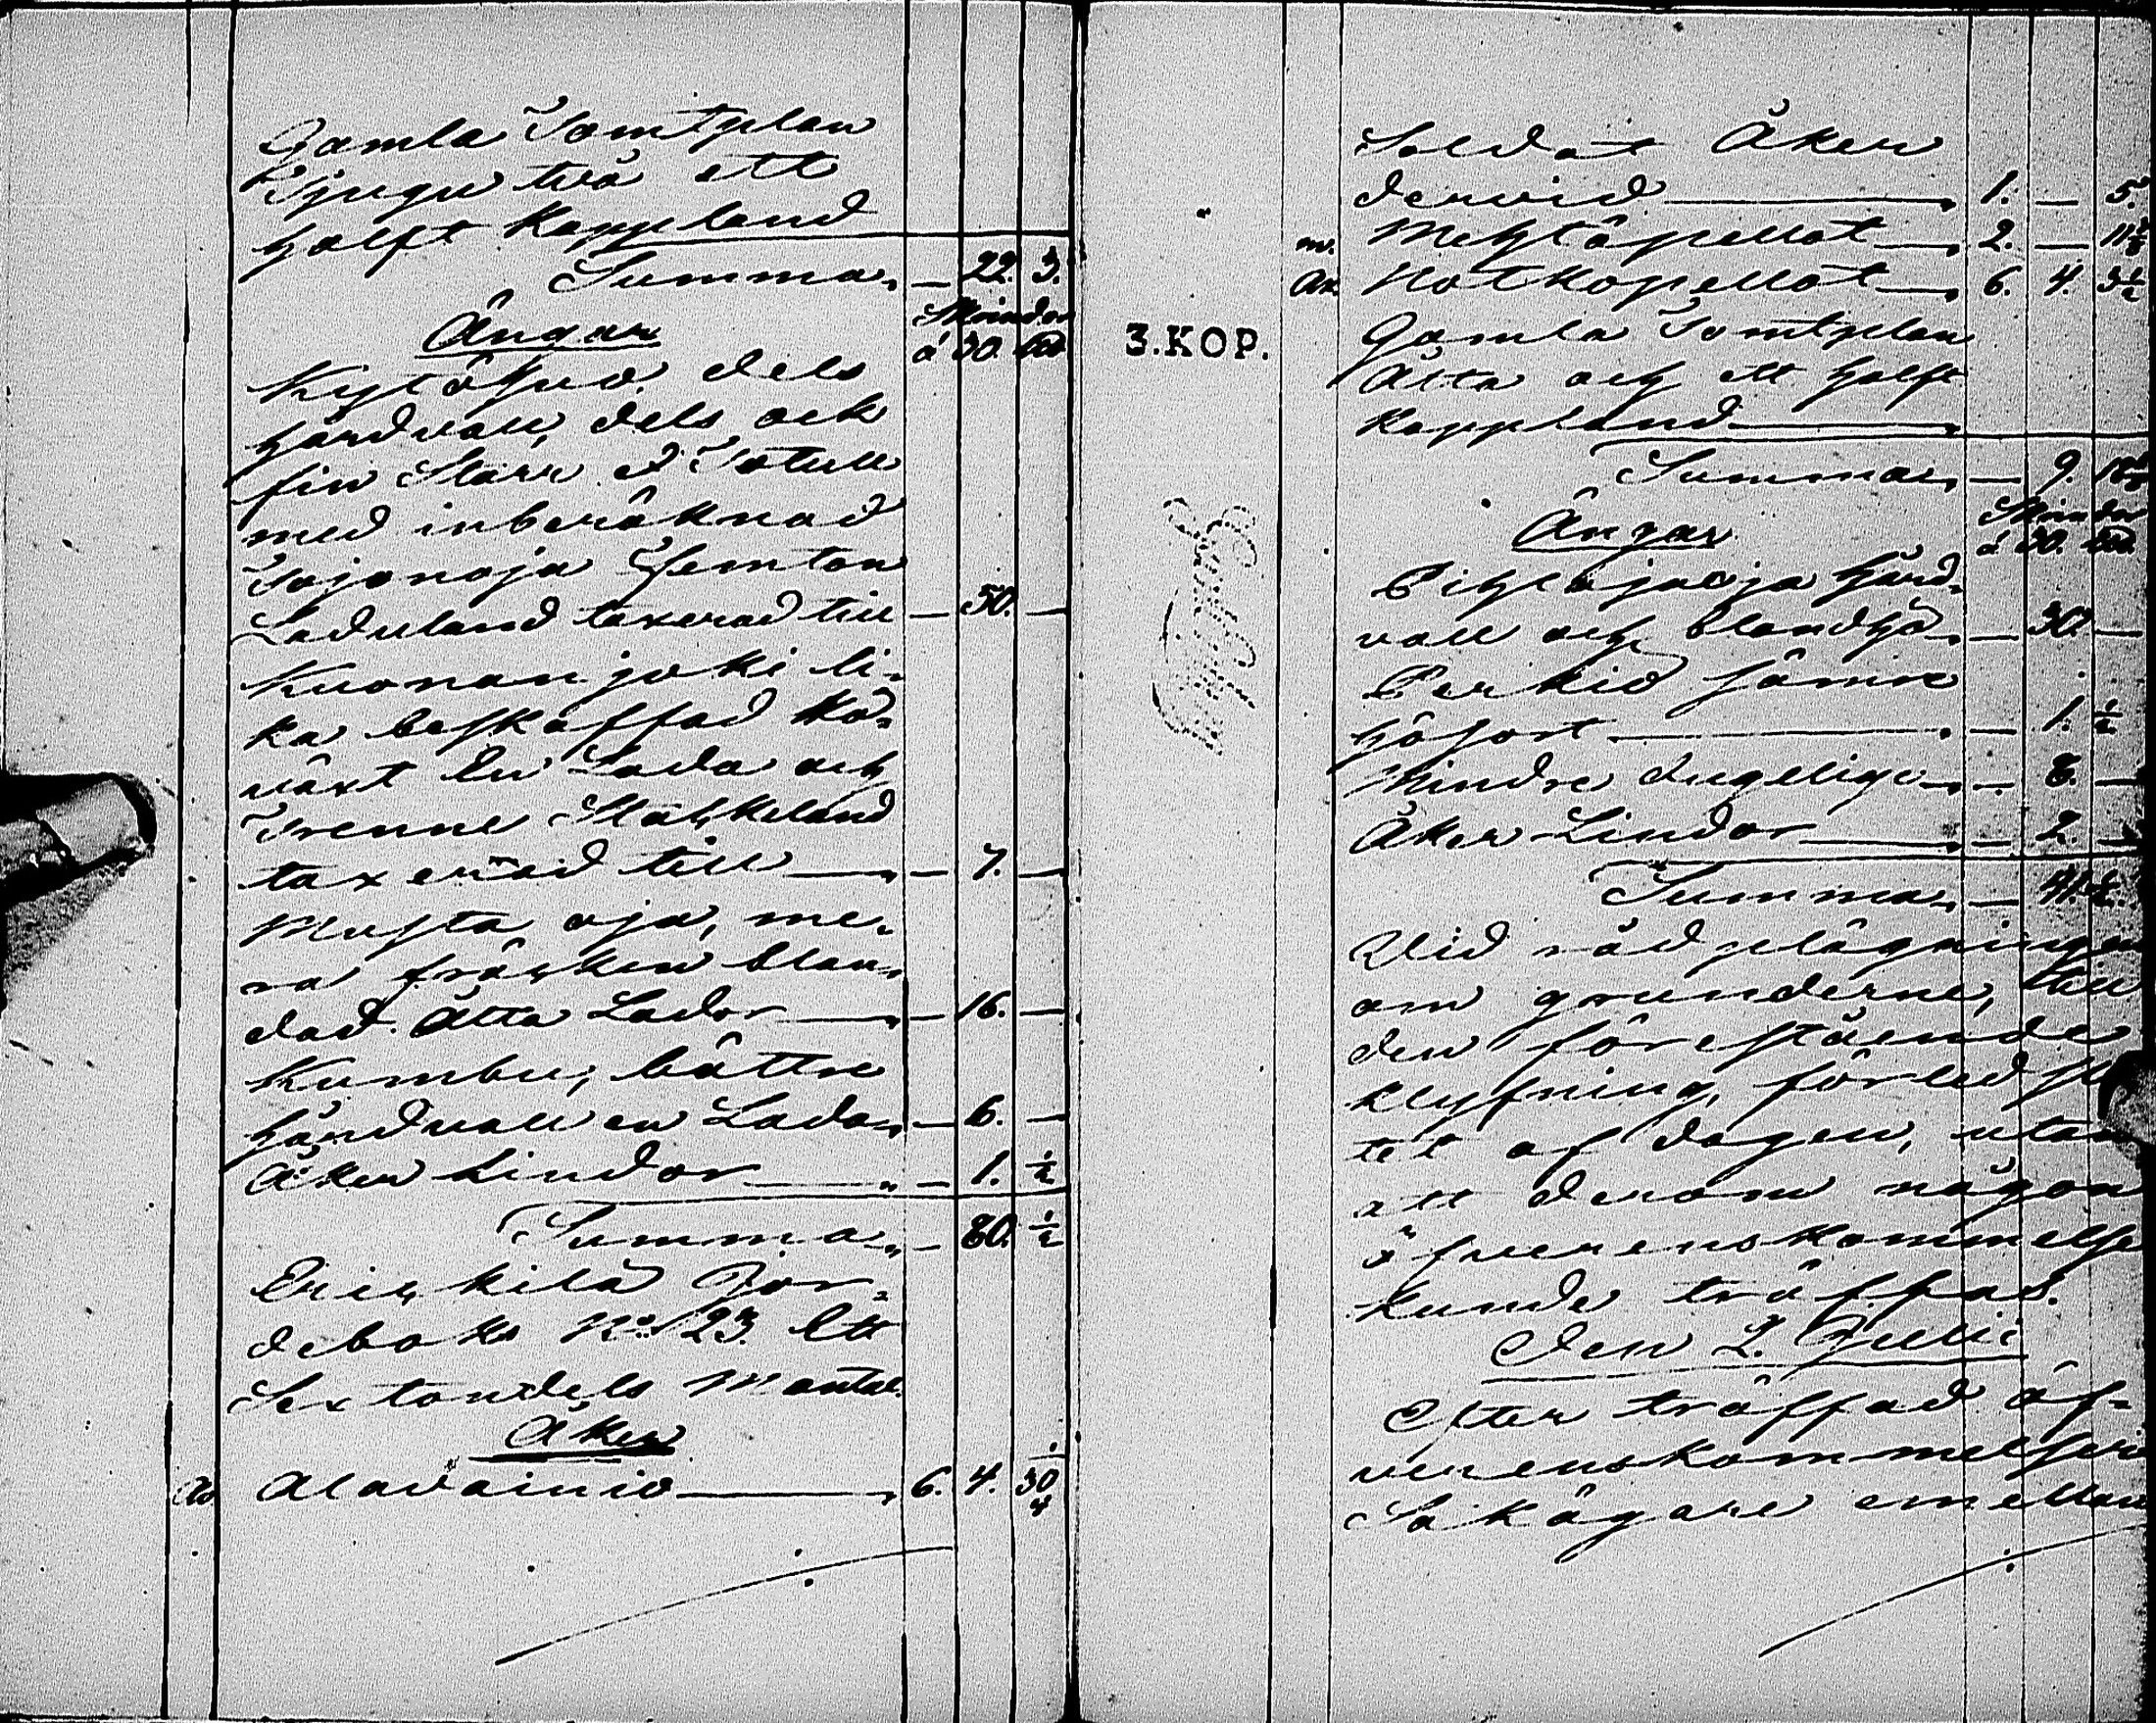 Gamla Tomtplan
Tjugu två ett
halft Kappland
Summa — 22. 3.
Ängar Skrindor
á 30. L℔
Kytöhud. dels
hårdvall, dels ock
fin Starr.
med inberäknad
Isojanoja Femton
Laduland taxerad till — 50. —
Kuonanjoki li-
ka beskaffad hö-
växt En Lada och
Trenne Stackeland
taxerad till — 7. —
Musta oja, me-
ra fräcken blan-
dad. Åtta Lador — 16. —
Kumbu, bättre
hårdvall en Lada — 6. —
Åker Lindor — 1. ½
Summa — 80. ½
Erickilä Jor-
deboks No 123. Ett
Sextondels Mantal.
Åker
Alavainio — 6. 4.
Soldat Åken
dervid — 1. — 5.
m. Mehtäpellot — 2. —
Notkopellot — 6. 4. 3½
Gamla Tomtplan
Åtta och ett halft
Kappland
Summa — 9.
3.KOP.
Ängar Skrindor
á 30. L℔
hård-
vall och blandhö — 30. —
Perkiö sämre
hösort — 1. ½
Mindre dugelige — 8. —
Åker Lindor — 2. —
Summa — 41. ½.
Vid rådplägningen
om grunderne, till
den förestående
klyfning, förled slu
tet af dagen, utan
att derom någon
öfverenskommelse
kunde träffas.
Den 2. Julii
Efter träffad öf-
verenskommelse
Sakägare emellan